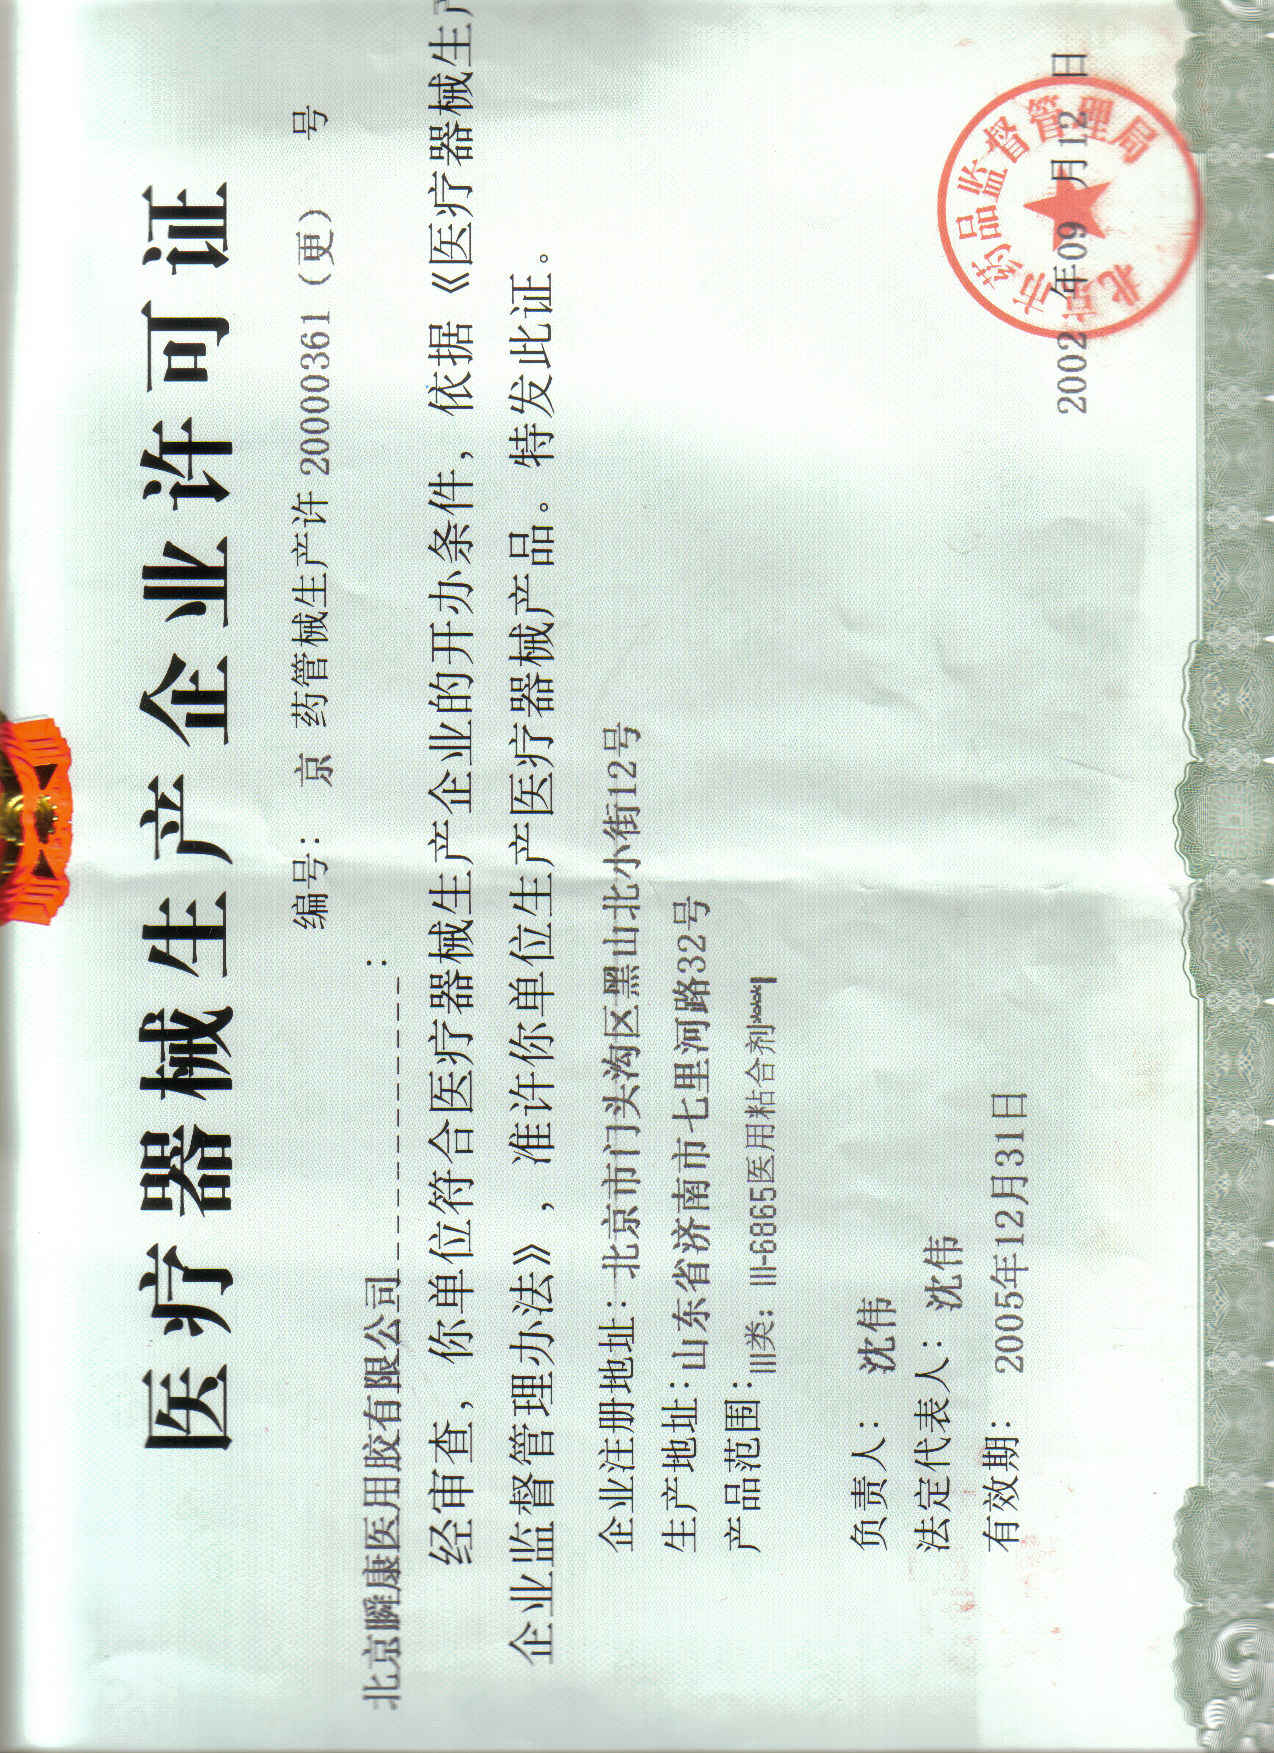 医疗器械生产企业许可证
编号： 京 药管械生产许 20000361（更） 号
北京瞬康医用胶有限公司：
经审查，你单位符合医疗器械生产企业的开办条件，依据《医疗器械生产
企业监督管理办法》，准许你单位生产医疗器械产品。特发此证。
企业注册地址：北京市门头沟区黑山北小街12号
生产地址：山东省济南市七里河路32号
产品范围：III类：III-6865医用粘合剂***
负责人： 沈伟
法定代表人： 沈伟
有效期： 2005年12月31日
北京市药品监督管理局
2002 年09 月12 日